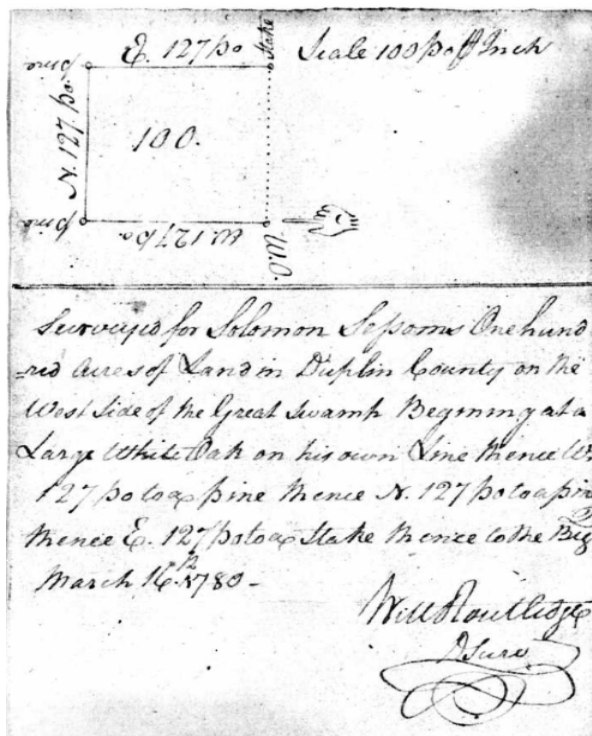 E. 127 po
Stake
Scale 100 po ⅌ Inch
pine
N. 127 po.
100.
pine
W. 127 po.
W.O.
Surveyed for Solomon Sessoms One hund
=red Acres of Land in Duplin County on the
West Side of the Great Swamp Begining at a
Large White Oak on his own Line thence W.
127 po to a pine thence N. 127 po to a pine
thence E. 127 po to a Stake thence to the Beg
March 16th 1780 -
Will Routledge
D Surv